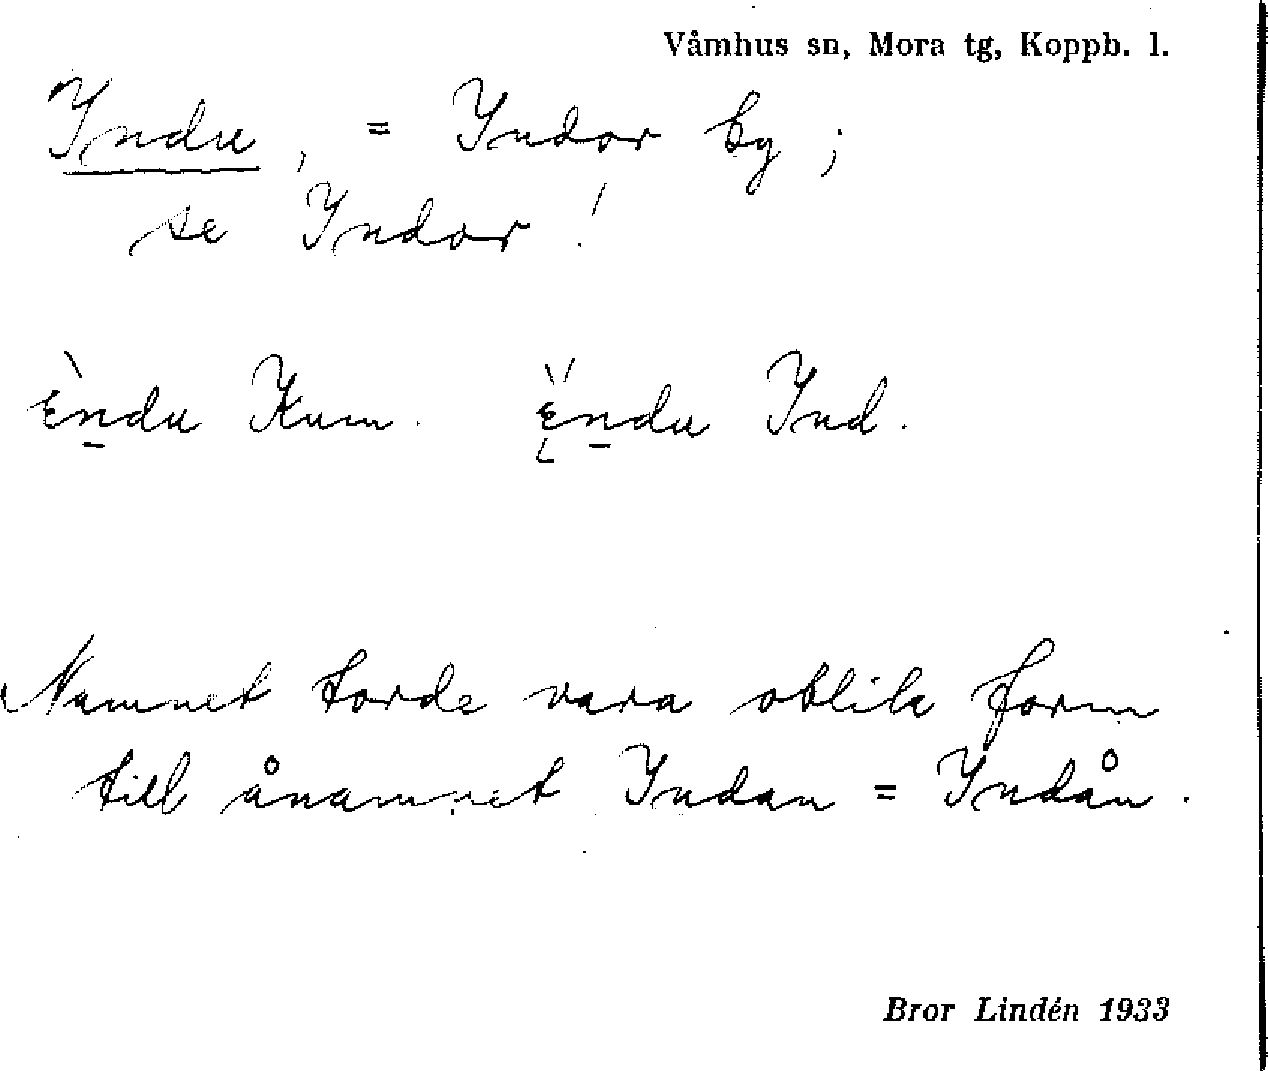 Våmhus sn, Mora tg, Koppb. l.
Yndu, = Yndor by;
se Yndor!
ὲn̲du Kum. ɛ̨̈n̲du Ynd.
Namnet torde vara oblik form
till ånamnet Yndan = Yndån.
Bror Lindén 1933